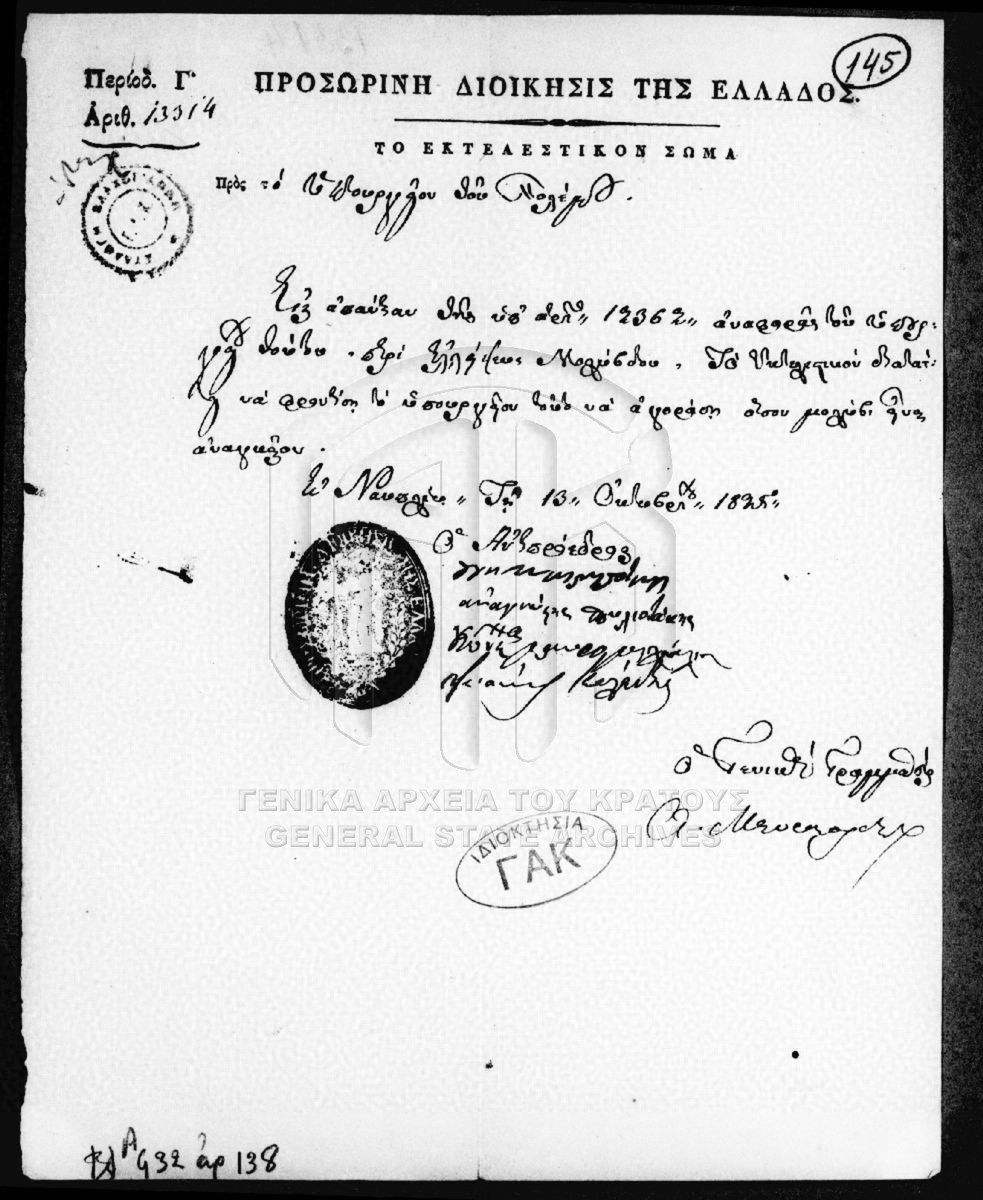 145
Περίοδ. Γʹ ΠΡΟΣΩΡΙΝΗ ΔΙΟΙΚΗΣΙΣ ΤΗΣ ΕΛΛΑΔΟΣ.
Αριθ. 13314
ΤΟ ΕΚΤΕΛΕΣΤΙΚΟΝ ΣΩΜΑ
Πρὸς τὸ Ὑπουργεῖον τοῦ Πολέμου.
Εἰς ἀπάντησιν τῆς ὑπ' ἀριθ. 12362 ἀναφορᾶς τοῦ ὑπουρ-
γείου τούτου, περὶ ἐλλείψεως μολύβδου, Τὸ Ἐκτελεστικὸν διατάτ-
τει νὰ φροντίσῃ τὸ ὑπουργεῖον τοῦτο νὰ ἀγοράσῃ ὅσον μολύβι εἶναι
ἀναγκαῖον.
Ἐν Ναυπλίῳ Τῇ 13 Ὀκτωβρίου 1825
Ὁ Ἀντιπρόεδρος
Ἰωάννης Κωλέττης
ὁ Γενικὸς Γραμματεὺς
ΓΕΝΙΚΑ ΑΡΧΕΙΑ ΤΟΥ ΚΡΑΤΟΥΣ
GENERAL STATE ARCHIVES
ΙΔΙΟΚΤΗΣΙΑ
ΓΑΚ
432 αρ 138